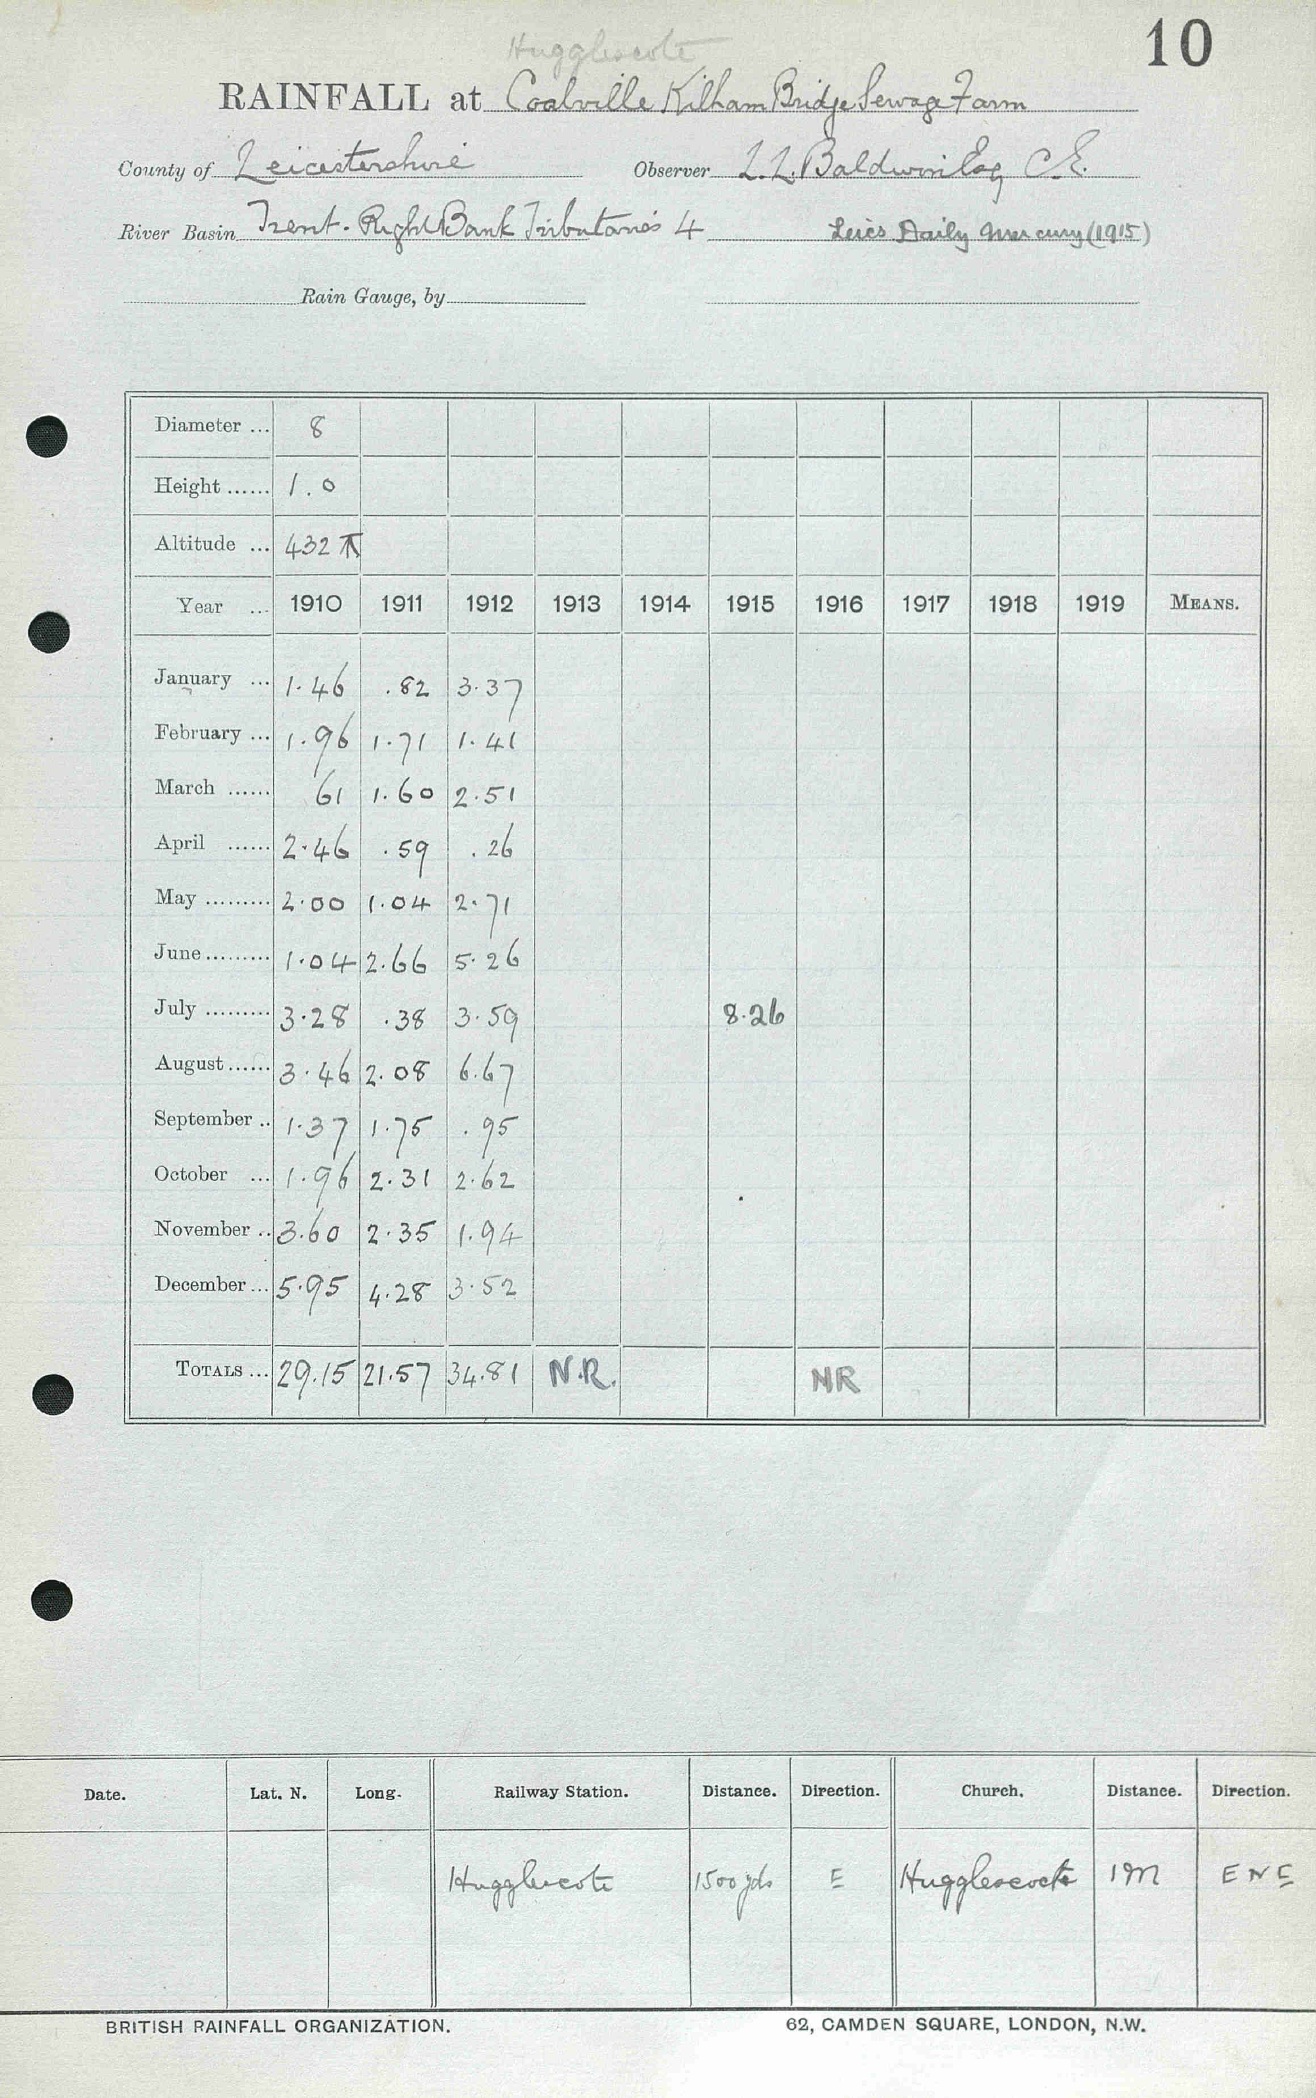 10
Hugglescote
RAINFALL at Coalville Kilham Bridge Sewage Farm
County of Leicestershire Observer L.L. Baldwin Esq C.E.
River Basin Trent. Right Bank Tributaries 4 Leics Daily Mercury (1915)
Rain Gauge, by
Diameter ... 8
Height ...... 1.0
Altitude ... 432
Year ... 1910 1911 1912 1913 1914 1915 1916 1917 1918 1919 MEANS.
January ... 1.46 .82 3.37
February ... 1.96 1.71 1.41
March ...... 61 1.60 2.51
April ...... 2.46 .59 .26
May ......... 2.00 1.04 2.71
June ......... 1.04 2.66 5.26
July ......... 3.28 .38 3.59 8.26
August ...... 3.46 2.08 6.67
September .. 1.37 1.75 .95
October ... 1.96 2.31 2.62
November .. 3.60 2.35 1.94
December ... 5.95 4.28 3.52
TOTALS ... 29.15 21.57 34.81 N.R. NR
Date. Lat. N. Long. Railway Station. Distance. Direction. Church. Distance. Direction.
Hugglescote 1500 yds E Hugglescote 1 M E N E
BRITISH RAINFALL ORGANIZATION. 62, CAMDEN SQUARE, LONDON, N.W.